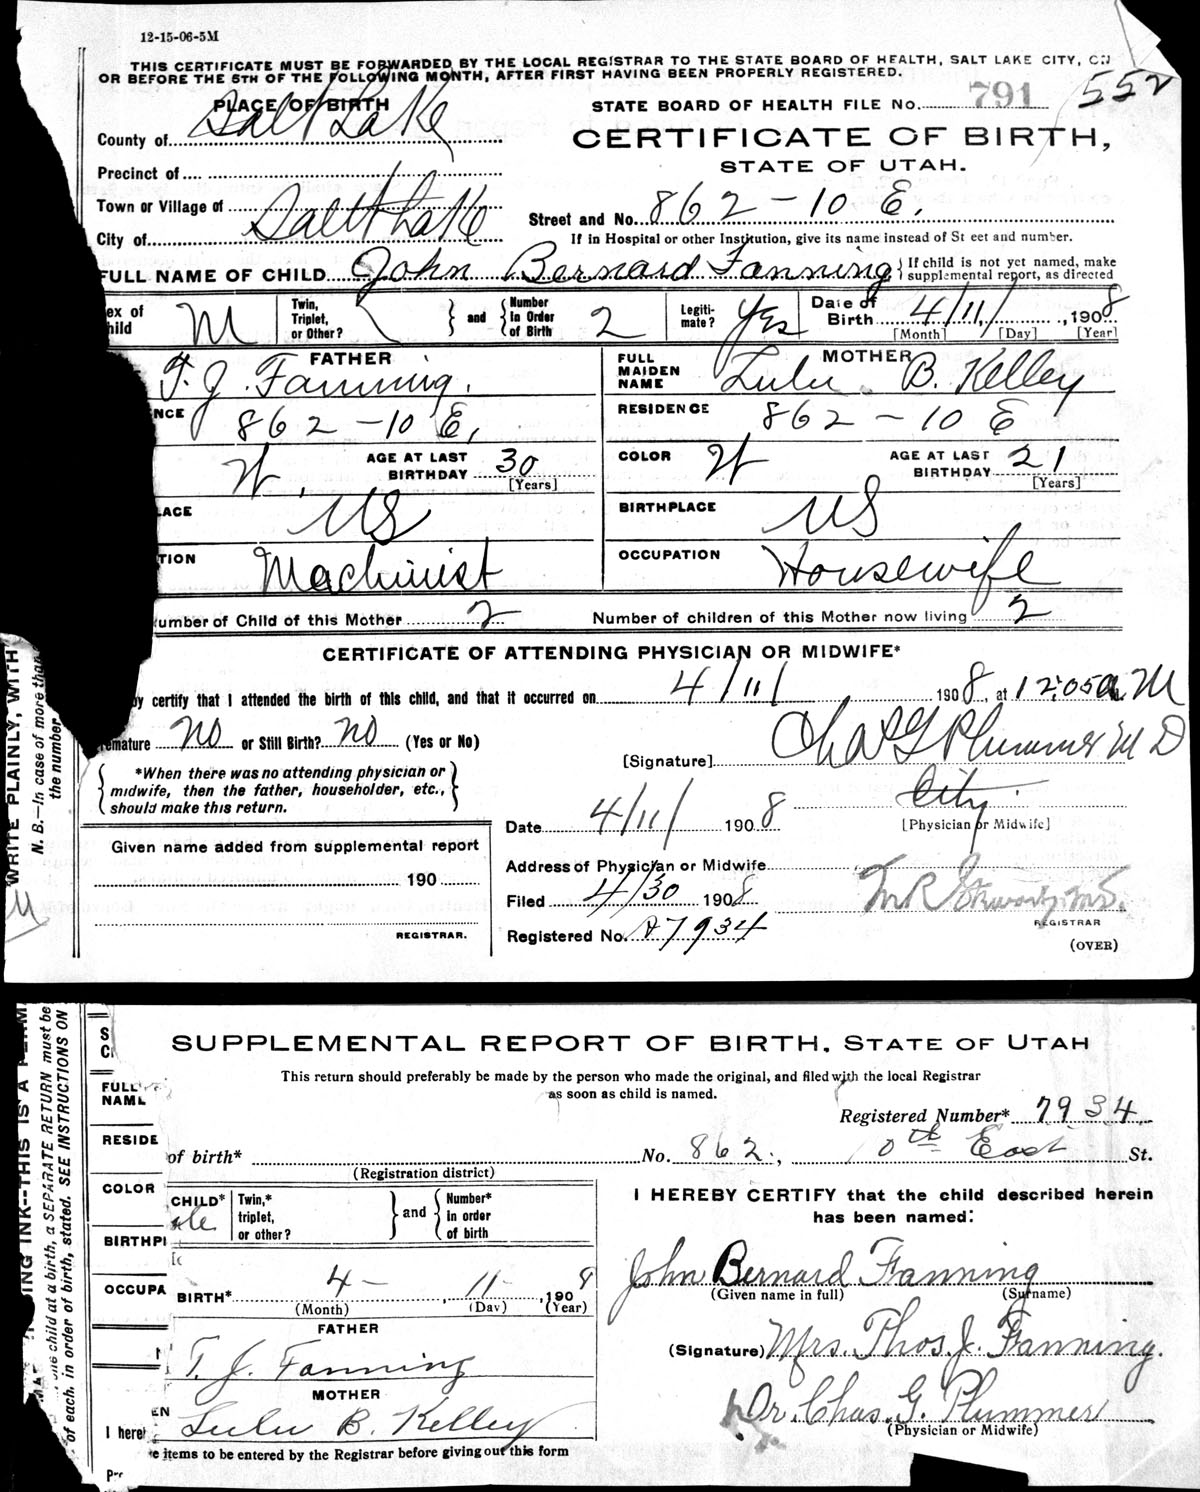 12-15-06-5M
THIS CERTIFICATE MUST BE FORWARDED BY THE LOCAL REGISTRAR TO THE STATE BOARD OF HEALTH, SALT LAKE CITY, ON
OR BEFORE THE 5TH OF THE FOLLOWING MONTH, AFTER FIRST HAVING BEEN PROPERLY REGISTERED.
552
PLACE OF BIRTH
STATE BOARD OF HEALTH FILE No. 791
County of Salt Lake
CERTIFICATE OF BIRTH,
STATE OF UTAH.
Precinct of
Town or Village of
City of Salt Lake
Street and No. 862 - 10 E.
If in Hospital or other Institution, give its name instead of St eet and number.
FULL NAME OF CHILD John Bernard Fanning } If child is not yet named, make supplemental report, as directed
ex of hild M
Twin, Triplet, or Other? } and { Number in Order of Birth 2
Legiti-mate? Yes
Date of Birth 4/11/, 1908
[Month] [Day] [Year]
FATHER
T. J. Fanning.
NCE 862 - 10 E,
W. AGE AT LAST BIRTHDAY 30
[Years]
LACE US
TION Machinist
MOTHER
FULL MAIDEN NAME Lulu B. Kelley
RESIDENCE 862 - 10 E
COLOR W AGE AT LAST BIRTHDAY 21
[Years]
BIRTHPLACE US
OCCUPATION Housewife
umber of Child of this Mother 2 Number of children of this Mother now living 2
CERTIFICATE OF ATTENDING PHYSICIAN OR MIDWIFE*
by certify that I attended the birth of this child, and that it occurred on 4/11/ 1908, at 12:05 a. M
remature no or Still Birth? no (Yes or No)
*When there was no attending physician or
midwife, then the father, householder, etc.,
should make this return.
[Signature] Chas G Plummer M D
City.
[Physician or Midwife]
Date 4/11/ 1908
Given name added from supplemental report
190
REGISTRAR.
Address of Physician or Midwife
Filed 4/30 1908
REGISTRAR
Registered No. A7934
(OVER)
WRITE PLAINLY, WITH
N. B.—In case of more than
the number
M
SUPPLEMENTAL REPORT OF BIRTH, STATE OF UTAH
This return should preferably be made by the person who made the original, and filed with the local Registrar
as soon as child is named.
Registered Number* 7934
of birth* No. 862, 10th East St.
(Registration district)
CHILD* ale
Twin,* triplet, or other? } and { Number* in order of birth
BIRTH* 4- 11-, 1908
(Month) (Day) (Year)
FATHER
T. J. Fanning
MOTHER
Lulu B. Kelley
e items to be entered by the Registrar before giving out this form
I HEREBY CERTIFY that the child described herein
has been named:
John Bernard Fanning
(Given name in full) (Surname)
(Signature) Mrs. Thos. J. Fanning.
Dr. Chas. G. Plummer
(Physician or Midwife)
FULL
NAME
RESIDE
COLOR
BIRTHPL
OCCUPA
I herel
one child at a birth, a SEPARATE RETURN must be
of each, in order of birth, stated. SEE INSTRUCTIONS ON
ING INK--THIS IS A PERM